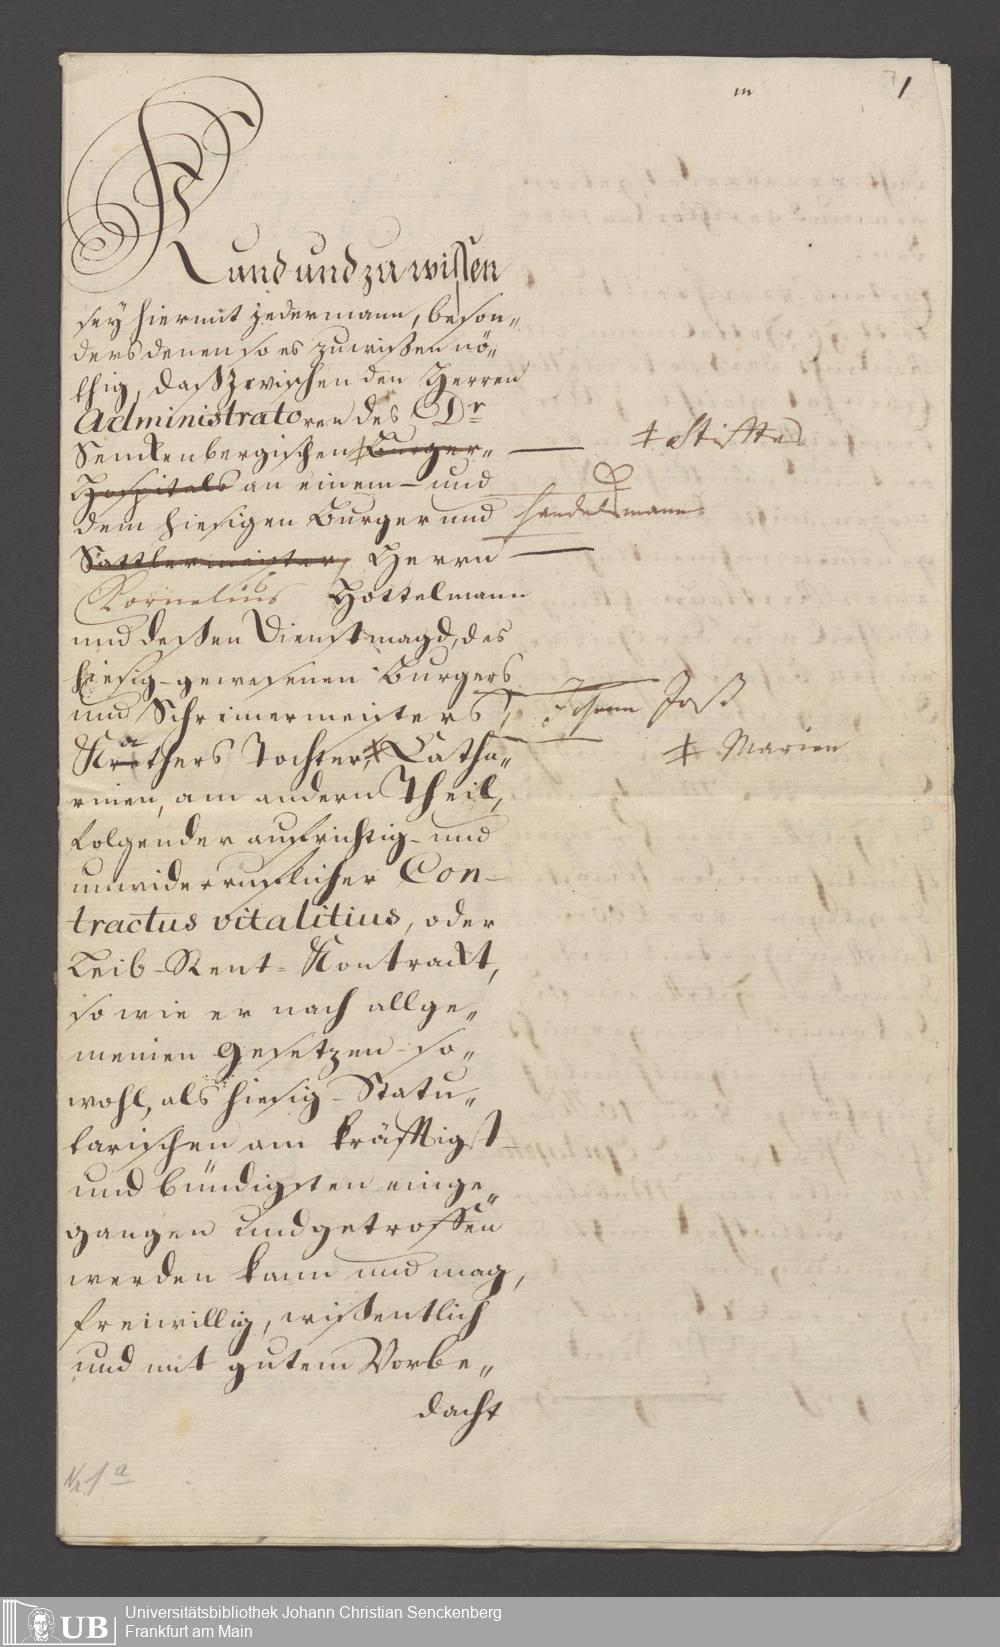 m 1
Kund und zu wissen
sey hiermit jedermann, beson„
ders denen so es zu wißen nö„
thig, daß zwischen den Herren
Administratoren des Dr
Senckenbergischen ‡ Burger„ — ‡ Stiftes
Hospitals an einem - und
dem hiesigen Burger und Handelsmann
Sattlermeister, Herrn —
Kornelius Hottelmann
und deßen Dienstmagd, des
hiesig-gewesenen Burgers
und Schreinermeisters, Johann Jost
Krathers Tochter, ‡ Catha„ ‡ Marien
rinen, am andern Theil,
folgender aufrichtig- und
unwiderruflicher Con-
tractus vitalitius, oder
Leib-Rent-Kontrackt,
so wie er nach allge„
meinen Gesetzen so„
wohl, als hiesig-Statu„
tarischen am kräfftigst-
und bündigsten einge„
gangen und getroffen
werden kann und mag,
freiwillig, wißentlich
und mit gutem Vorbe„
dacht
Nr. 1 a
UB
Universitätsbibliothek Johann Christian Senckenberg
Frankfurt am Main